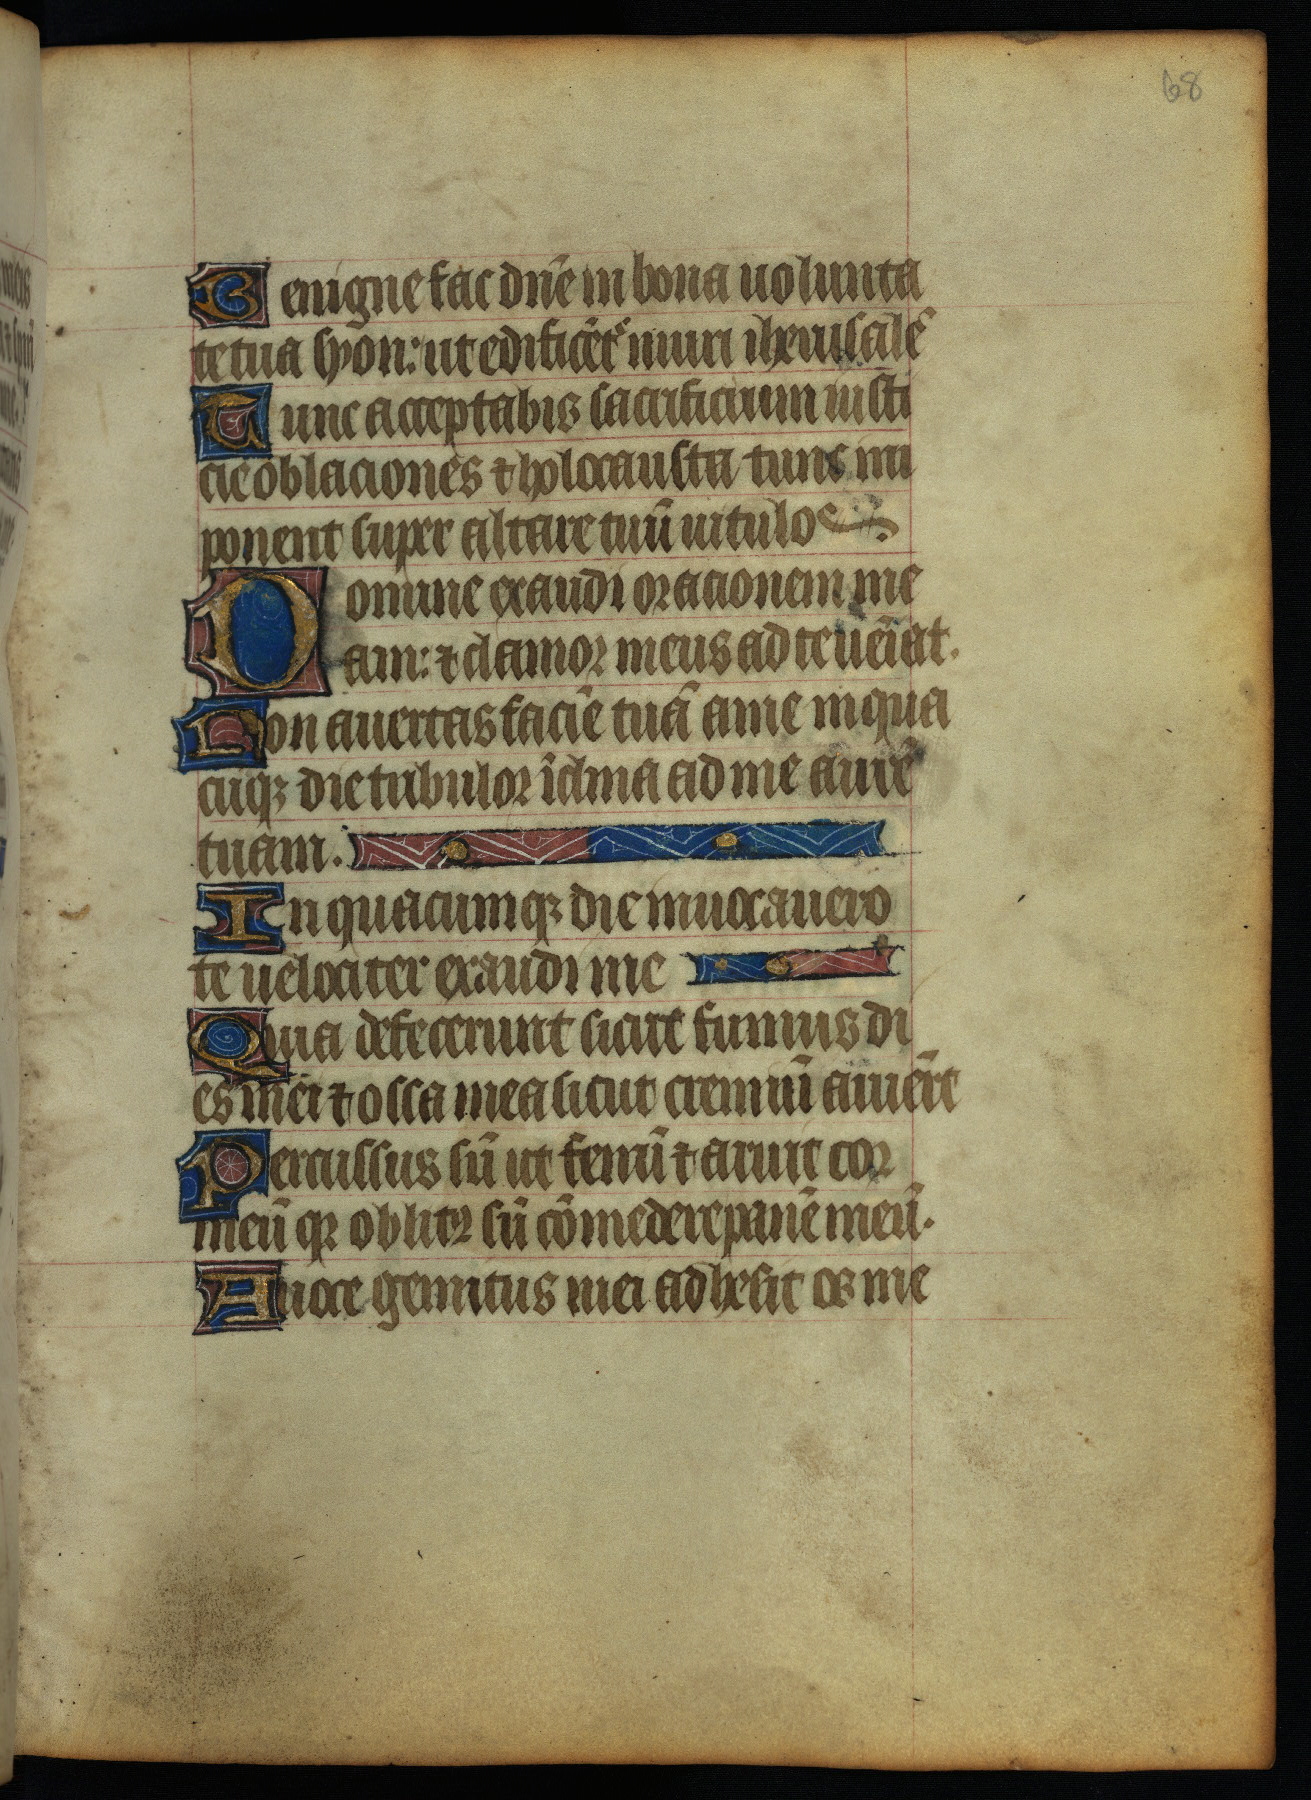 68
Benigne fac dn̄e in bona uolunta
te tua syon: ut edificēt᷑ muri iherusalē
Tunc acceptabis sacrificium iusti
cie oblaciones ⁊ holocausta tunc im
ponent super altare tuū uitulos
Domine exaudi oracionem me
am: ⁊ clamor meus ad te ueīat.
Non auertas faciē tuā a me in qua
cūqꝫ die tribulor īclina ad me aurē
tuam.
In quacumqꝫ die inuocauero
te uelociter exaudi me
Quia defecerunt sicut fumus di
es mei ⁊ ossa mea sicut cremiū aruert̄
Percussus sū ut fenū ⁊ aruit cor
meū qꝛ oblitꝰ sū cōmedere panē meū.
A uoce gemitus mei adhesit os me